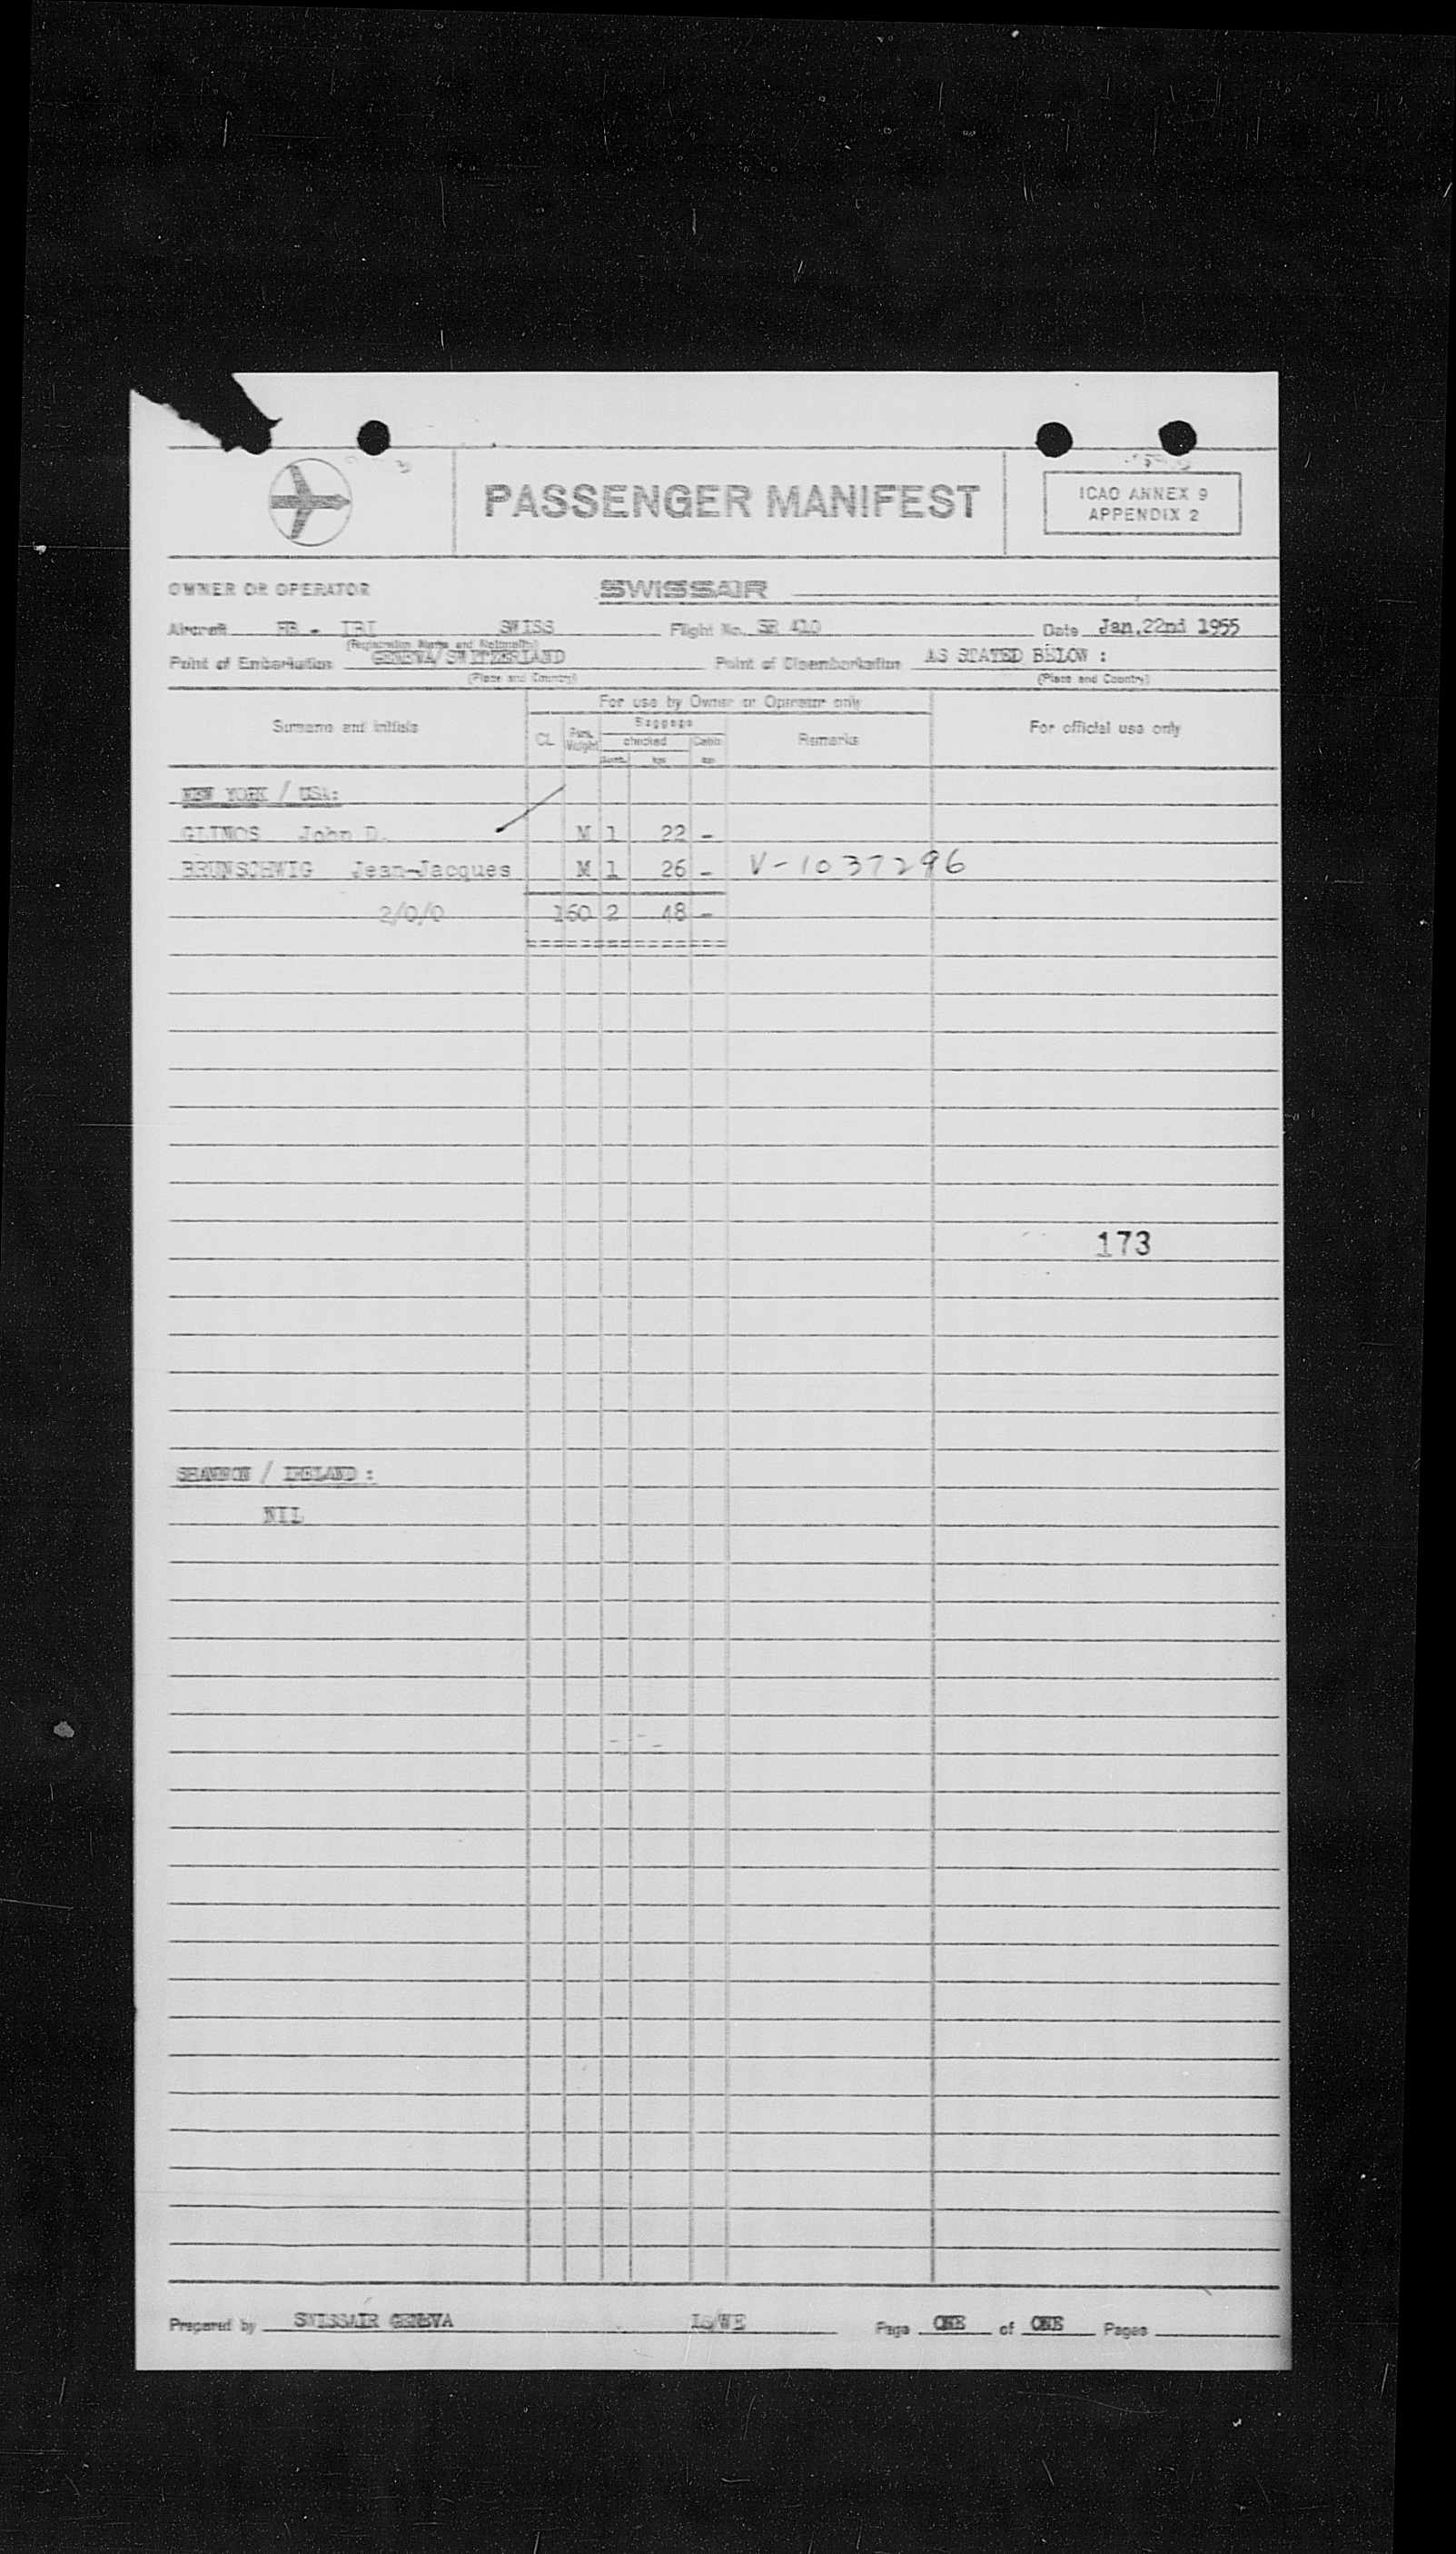 PASSENGER MANIFEST
ICAO ANNEX 9
APPENDIX 2
OWNER OR OPERATOR SWISSAIR
Aircraft HB - IBI SWISS Flight No. SR 410 Date Jan,22nd 1955
(Registration Marks and Nationality)
Point of Embarkation GENEVA/SWITZERLAND Point of Disembarkation AS STATED BELOW :
(Place and Country) (Place and Country)
For use by Owner or Operator only
Surname and initials CL Pass. Weight Baggage Remarks For official use only
checked Cabin
kgs
NEW YORK / USA:
GLINOS John D. M 1 22 -
BRUNSCHWIG Jean-Jacques M 1 26 - V-1037296
2/0/0 160 2 48 -
173
SHANNON / IRELAND :
NIL
Prepared by SWISSAIR GENEVA Page ONE of ONE Pages